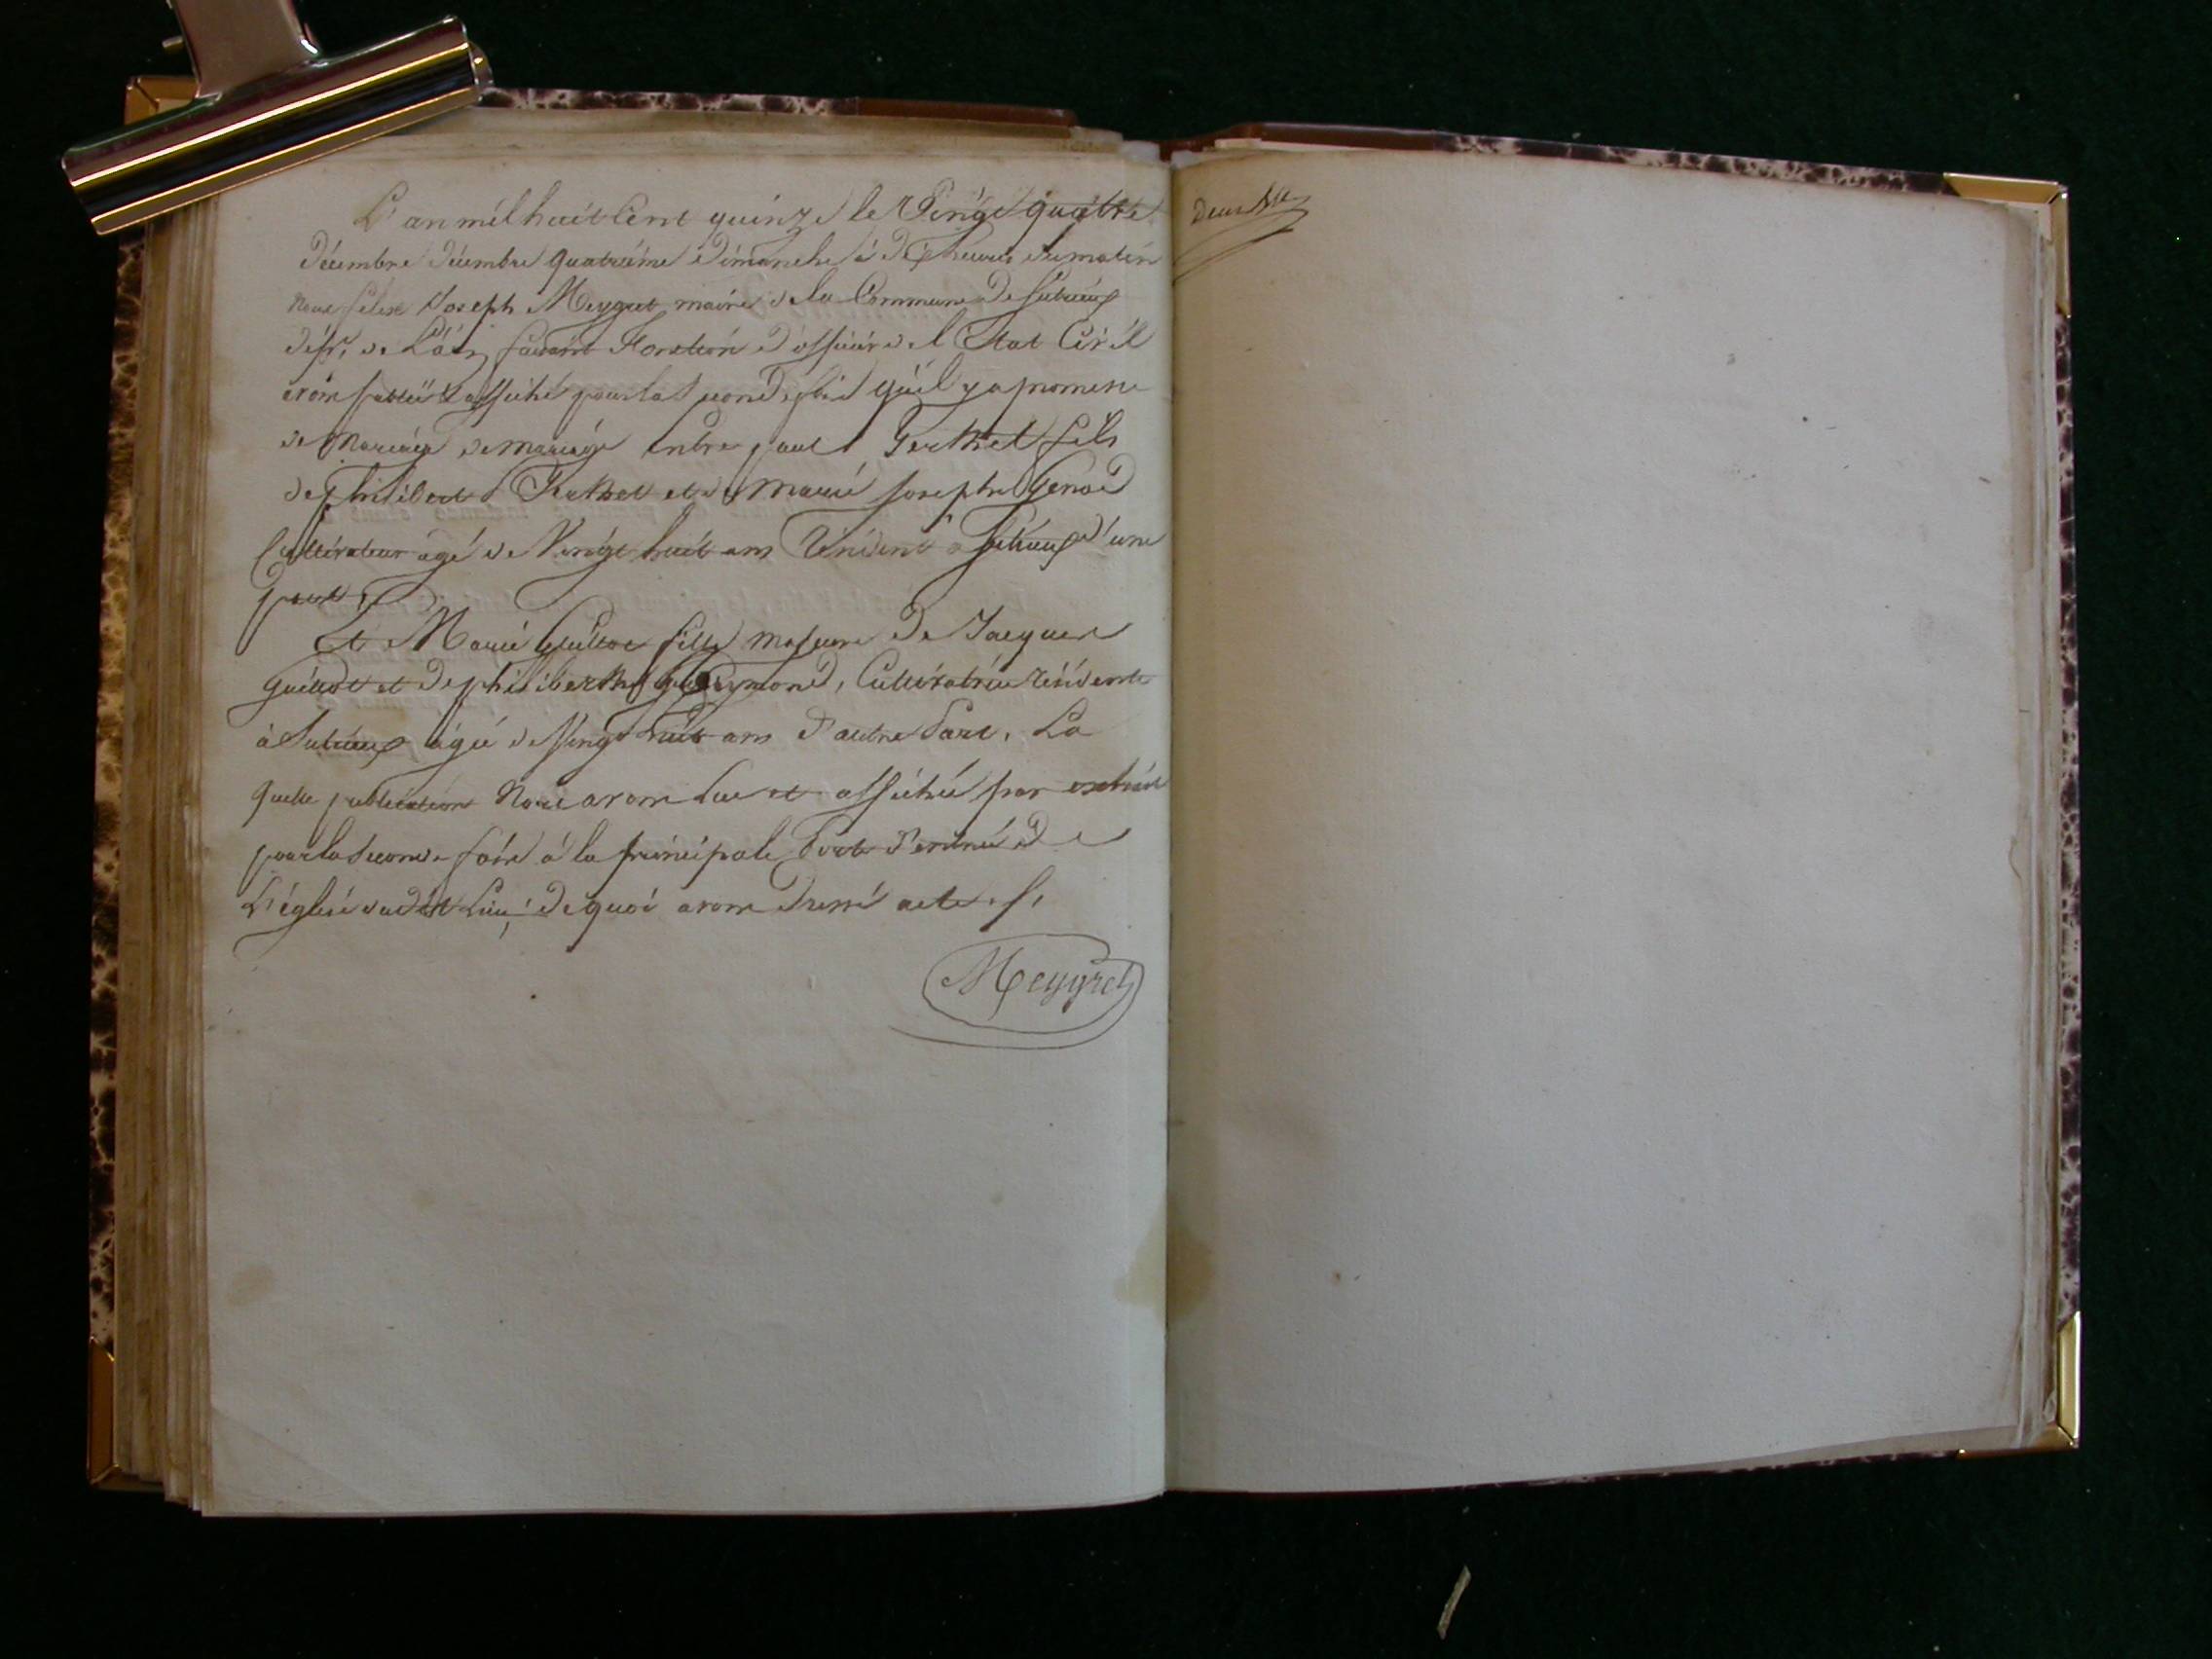 L'an mil huit Cent quinze le Vingt quatre
Décembre Décembre quatrième Dimanche à Dix heures du matin
Nous felix Joseph Meygret maire de la Commune De Sutrieux
Dépt. de L'ain faisant Fonction d'officier de l Etat Civil
avons publié & affiché pour la seconde fois qu'il y a promesse
de Mariage de mariage Entre paul Berthet fils
de philibert Berthet et de Marie Josephe Genod
Cultivateur agé de Vingt huit ans Résident à Sutrieux d'une
part,
Et Marie Guillot fille majeure De Jacques
Guillot et De philiberthe Reymond, Cultivatrice résidente
à Sutrieux agée de Vingt huit ans D'autre Part, La
quelle publication Nous avons Lue et affichée par extrait
pour la seconde fois à la principale Porte d'entrée de
L'église dudit Lieu, De quoi avons Dressé acte
Meygret